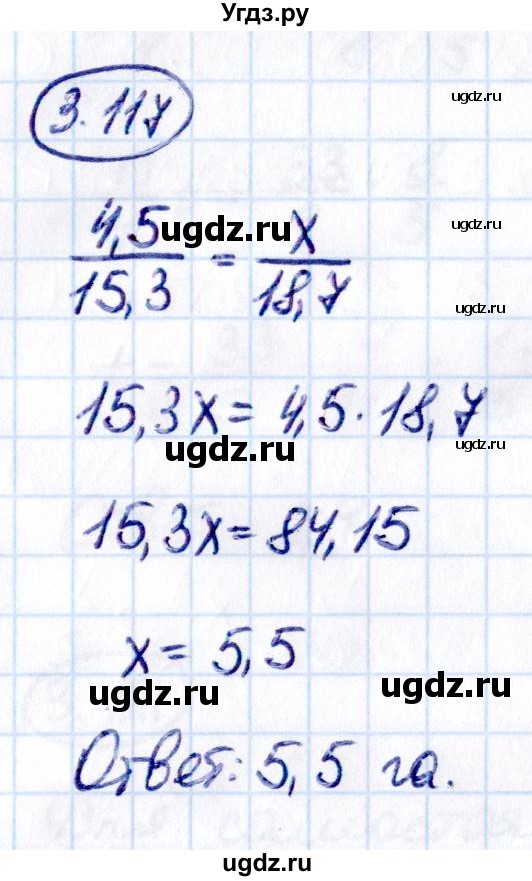 Угдз.ру
3.117
ugdz.ru
ugdz.ru
4,5/15,3 = x/18,7
ugdz.ru
ugdz.ru
15,3x = 4,5 · 18,7
ugdz.ru
ugdz.ru
15,3x = 84,15
x = 5,5
ugdz.ru
ugdz.ru
Ответ: 5,5 га.
ugdz.ru